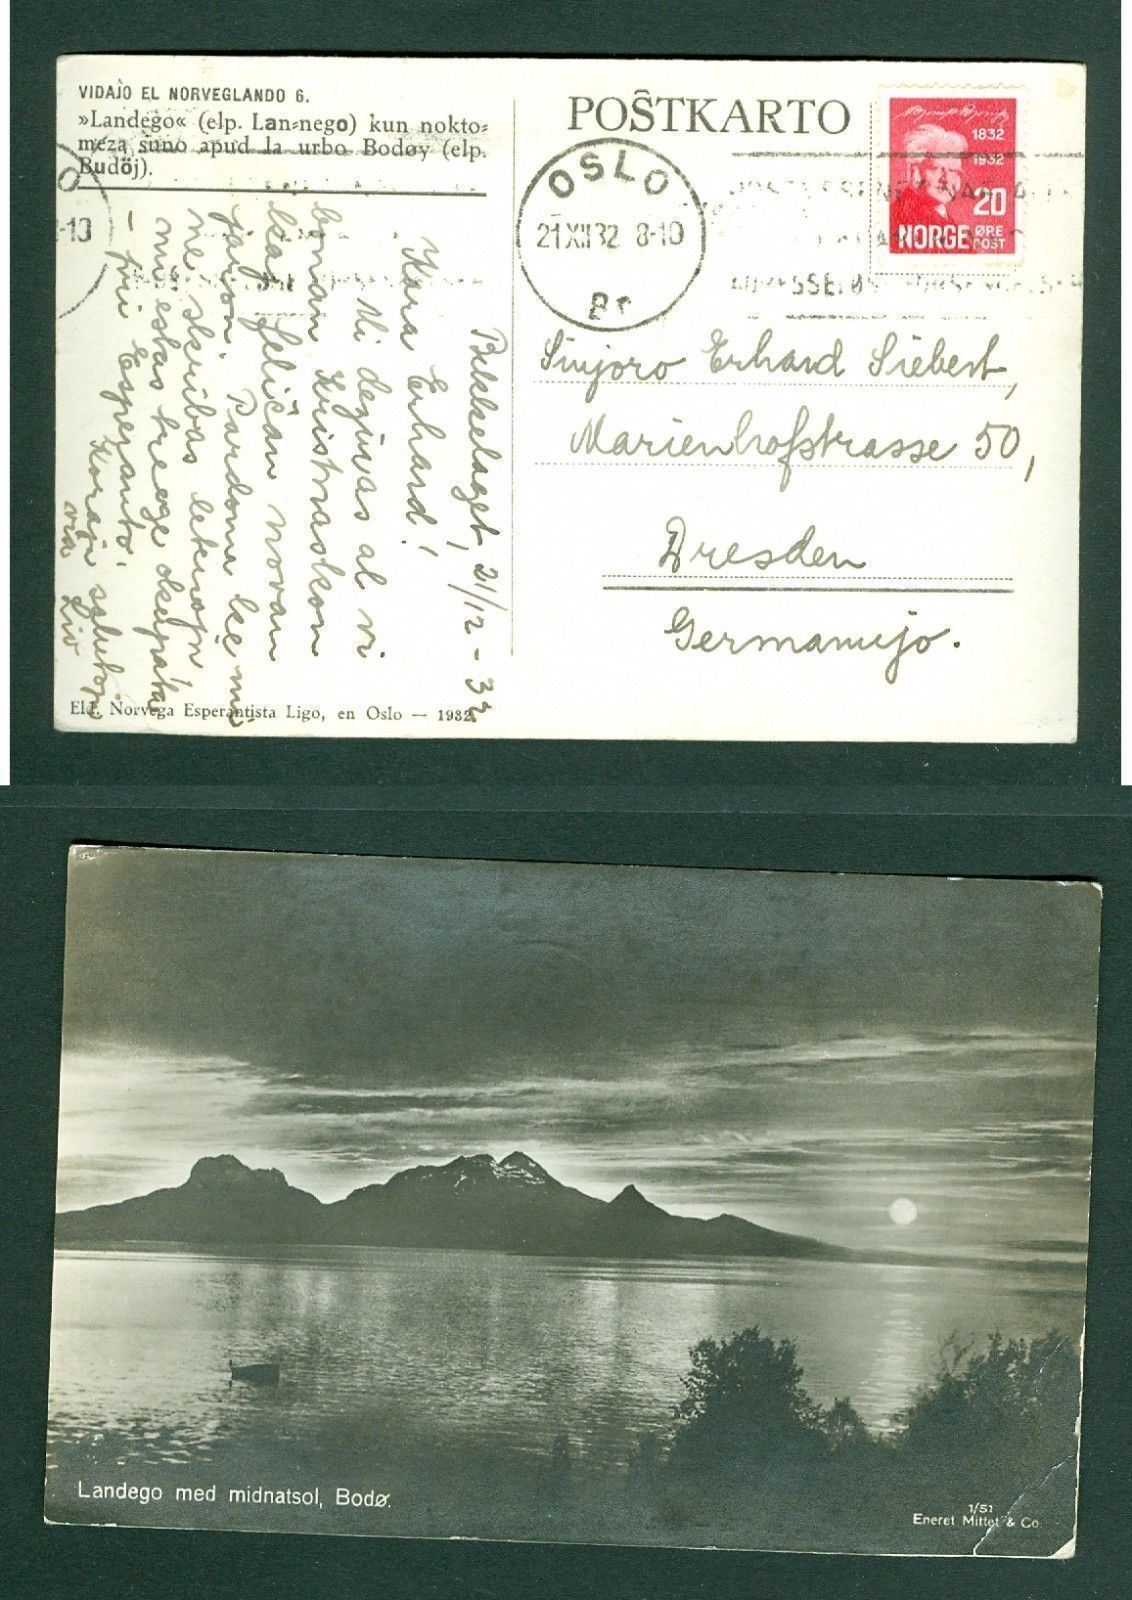 VIDAĴO EL NORVEGLANDO 6.
»Landego« (elp. Lan=nego) kun nokto=
meza suno apud la urbo Bodøy (elp.
Budöj).
POŜTKARTO
1832
1932
20
NORGE ØRE
POST
OSLO
21 XII 32 8-10
Br
-10
Bekkelaget, 21/12 - 32
Kara Erhard!
Mi deziras al vi
bonan Kristnaskon
kaj feliĉan novan
jaron. Pardonu ke mi
ne skribas leteron,
mi estas treege okupata
- pri Esperanto!
Korajn salutojn
via Liv
Sinjoro Erhard Siebert,
Marienhofstrasse 50,
Dresden
Germanujo.
Eld. Norvega Esperantista Ligo, en Oslo — 1932.
Landego med midnatsol, Bodø.
1/51
Eneret Mittet & Co